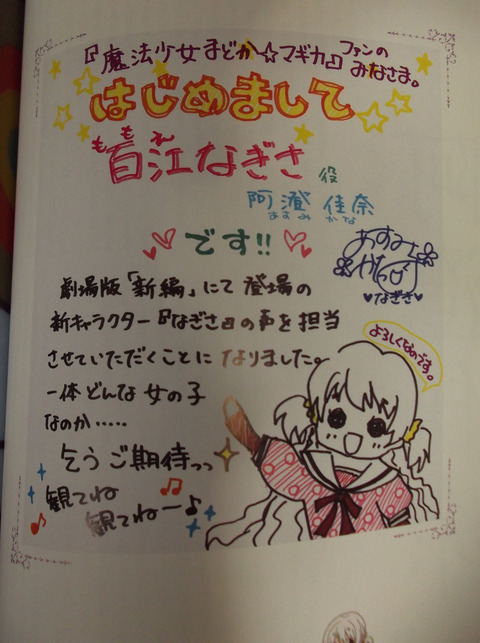 『魔法少女まどか☆マギカ』ファンの
みなさま。
はじめまして
ももえ
百江なぎさ 役
阿澄 佳奈
あすみ かな
です!!
あすみ
かな
♥なぎさ♥
劇場版「新編」にて登場の
新キャラクター『なぎさ』の声を担当
させていただくことになりました。
よろしくなのです。
一体どんな女の子
なのか・・・・・
乞うご期待っっ
観てね
観てねー♪